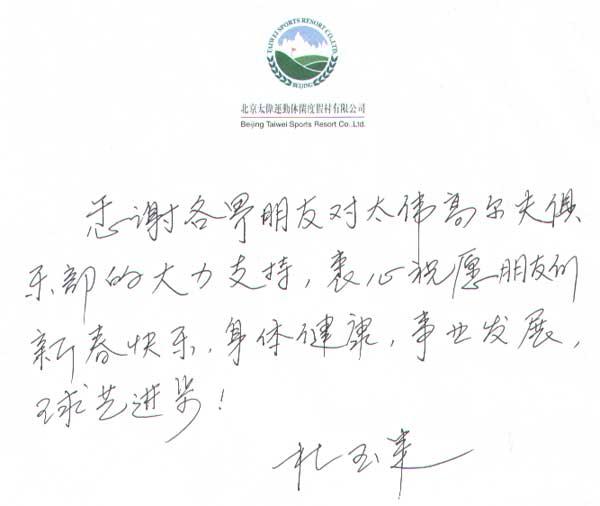 TAIWEI SPORTS RESORT CO.,LTD.
BEIJING
北京太偉運動休閑度假村有限公司
Beijing Taiwei Sports Resort Co.,Ltd.
感谢各界朋友对太伟高尔夫俱
乐部的大力支持，衷心祝愿朋友们
新春快乐，身体健康，事业发展，
球艺进步！
杜玉来